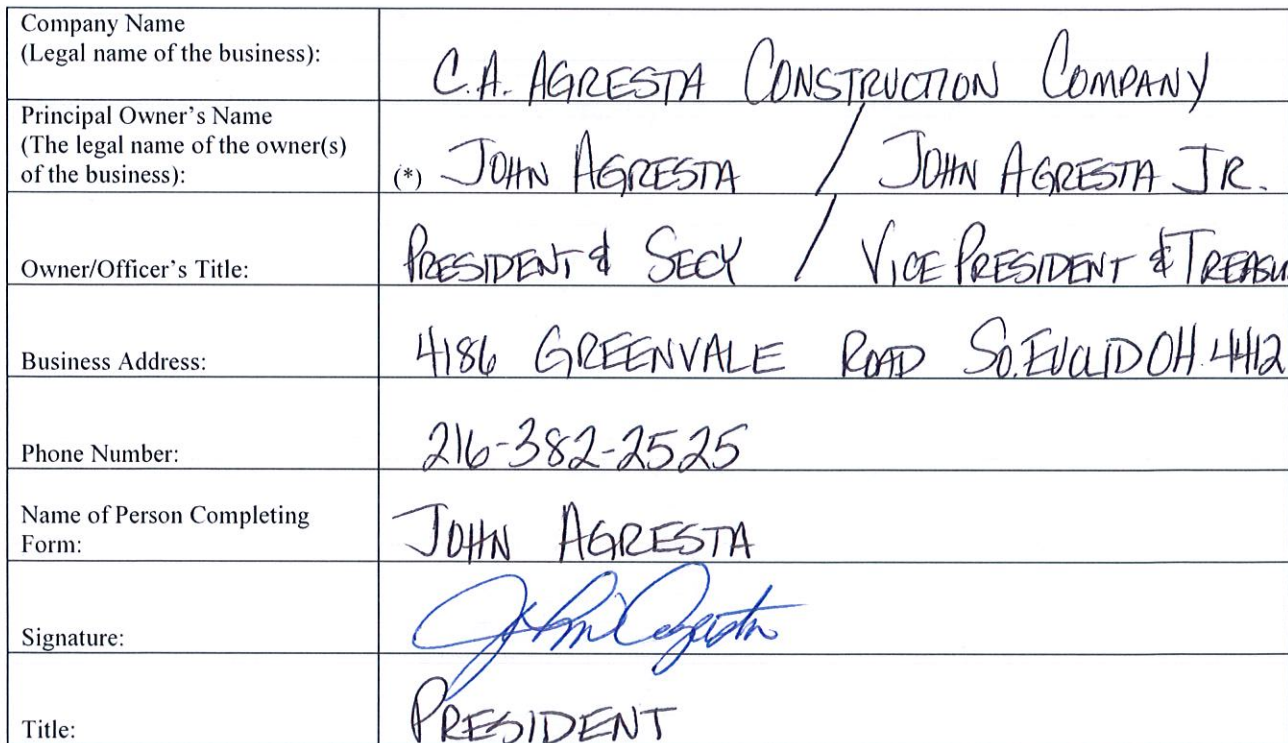 Company Name
(Legal name of the business):
C.A. AGRESTA CONSTRUCTION COMPANY
Principal Owner's Name
(The legal name of the owner(s)
of the business):
(*) JOHN AGRESTA / JOHN AGRESTA JR.
Owner/Officer's Title:
PRESIDENT & SECY / VICE PRESIDENT & TREASU
Business Address:
4186 GREENVALE ROAD SO. EUCLID OH. 4412
Phone Number:
216-382-2525
Name of Person Completing
Form:
JOHN AGRESTA
Signature:
Title:
PRESIDENT